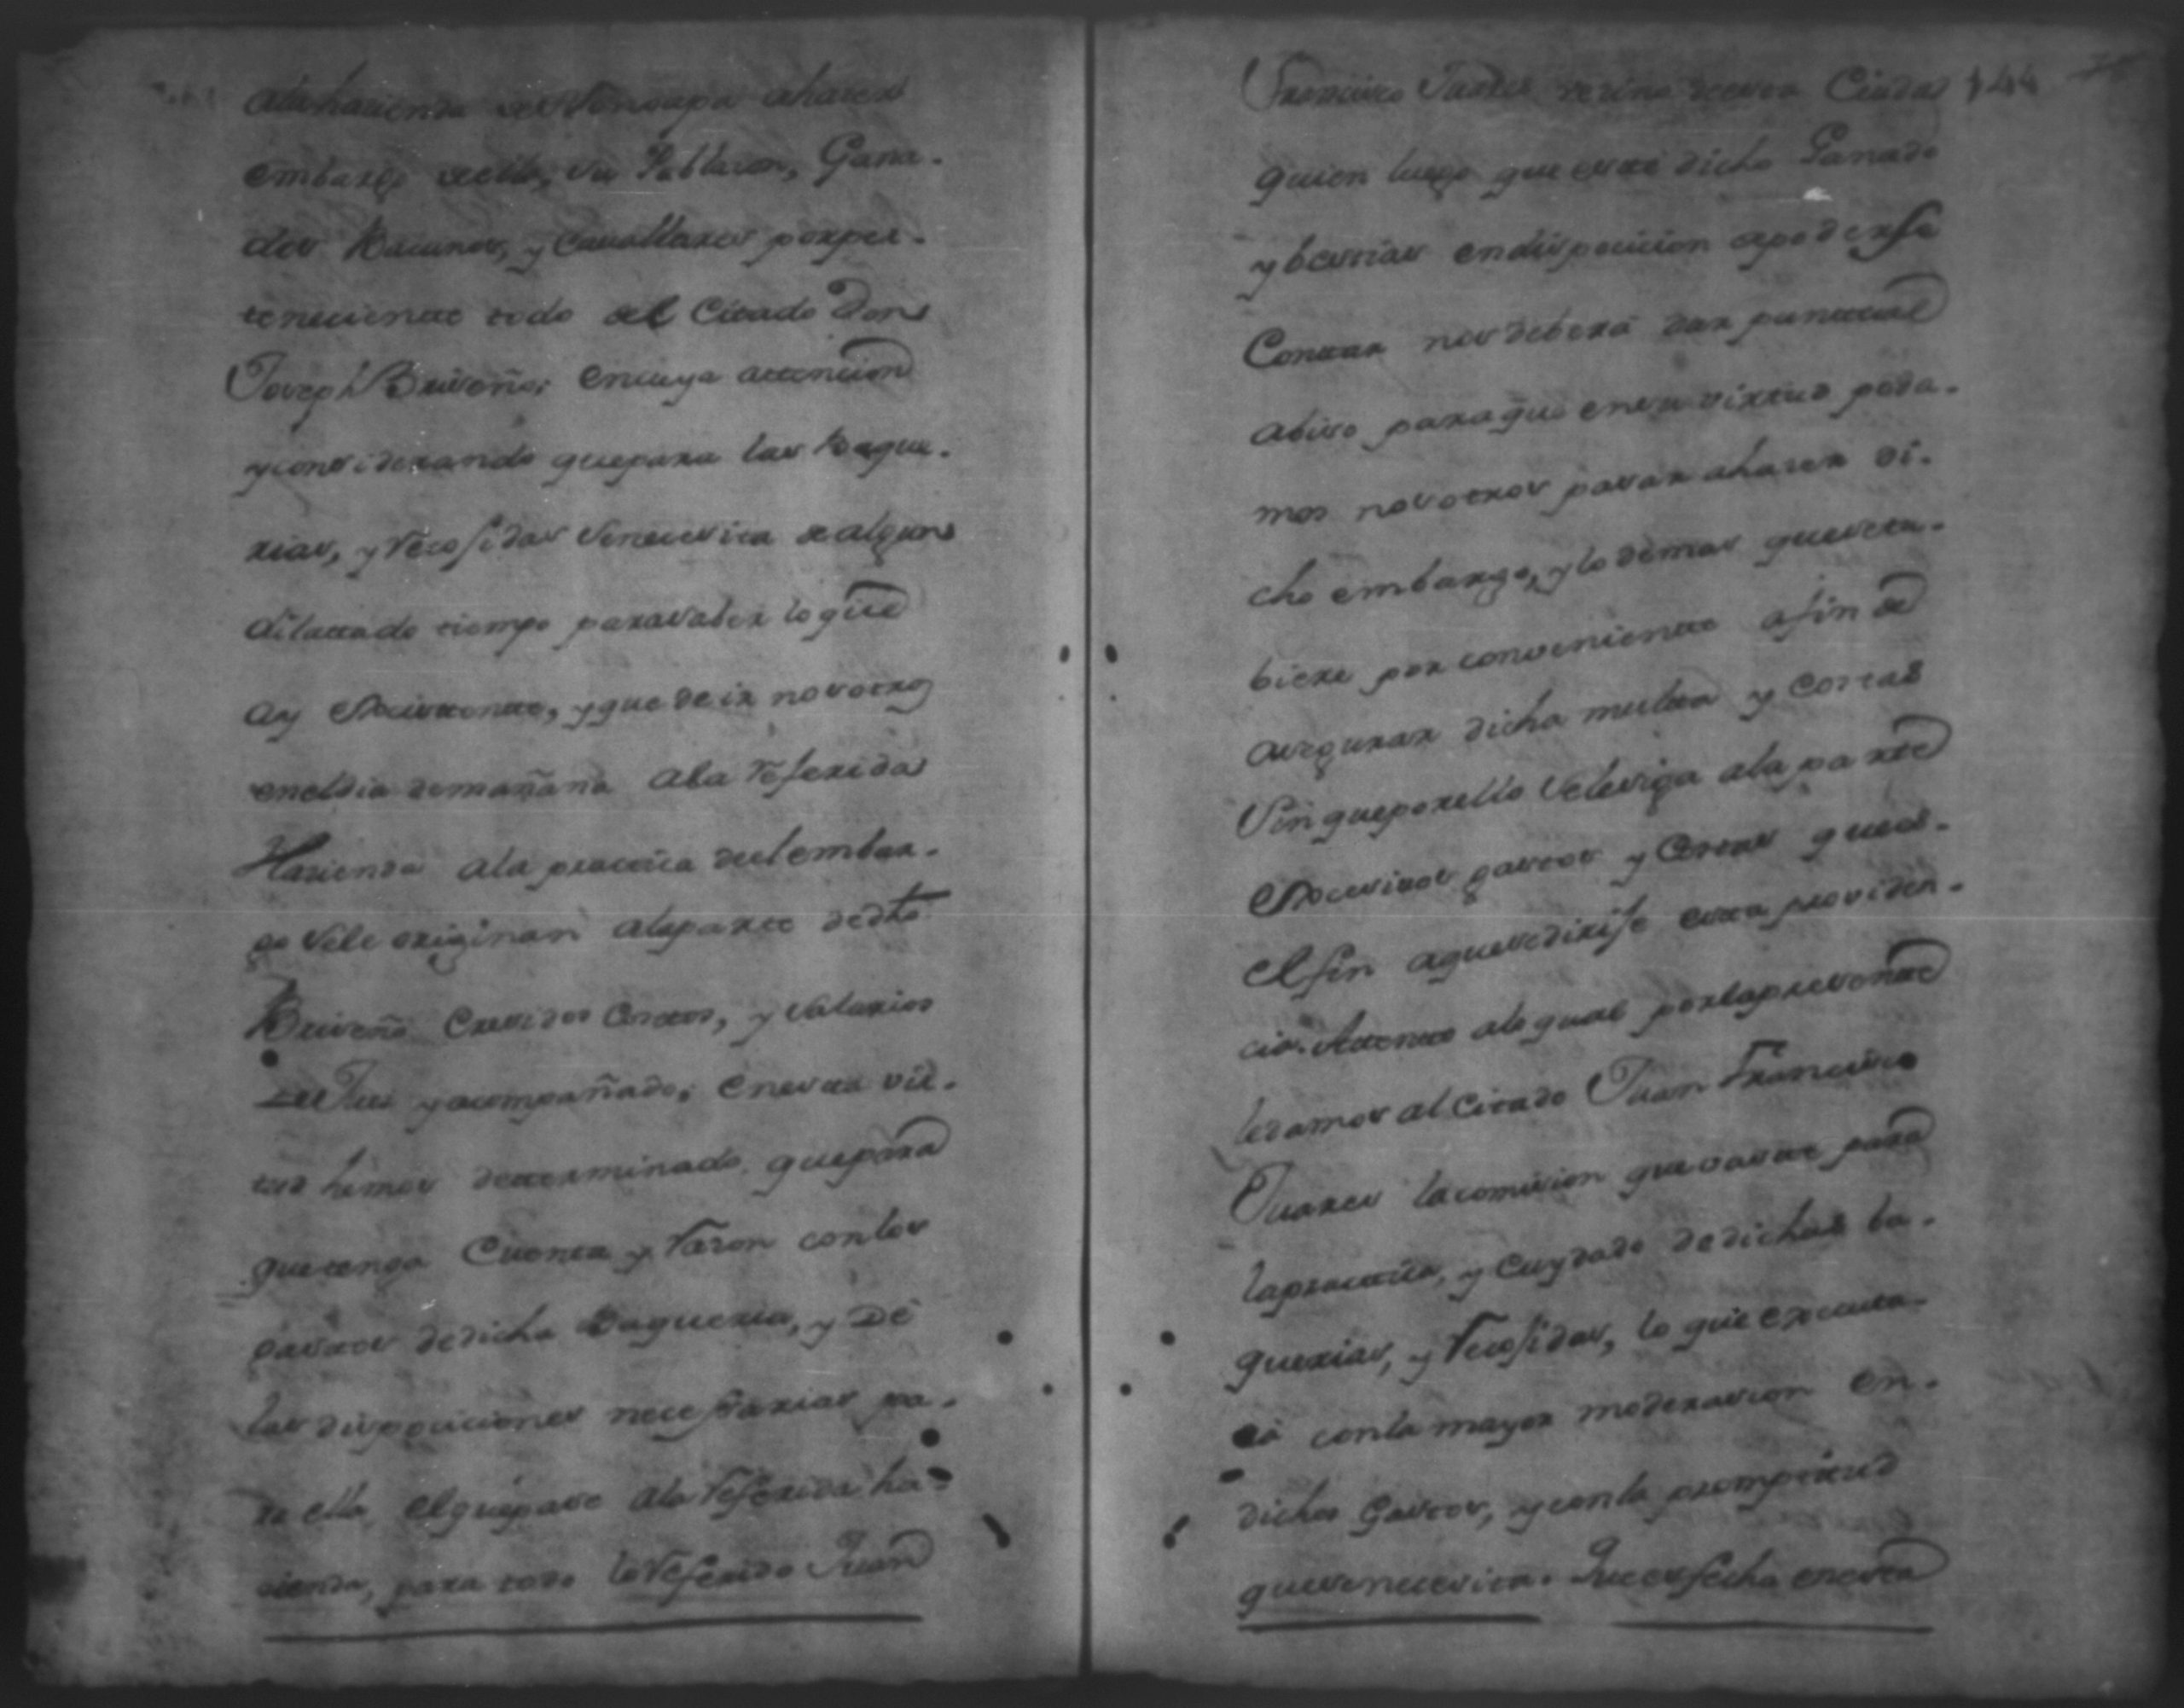 ala hacienda de ahacer
embargo de ella, su Poblacion, Gana-
dos Bacunos, y Cavallares por per-
teneciente todo al Citado Don
Joseph Briseño; en cuya attencion
y considerando que para las Baque-
rias, y Recojidas se necesita de algun
dilattado tiempo para saber lo que
ay Existente, y que de ir nosotros
en el dia de mañana ala Referida
Hacienda ala practica del embar-
go se le originan ala parte de dho
Briseño Crecidos Costos, y Salarios
de Jues y acompañado; en esta vir-
tud hemos determinado que para
que tenga Cuenta y Razon con los
gastos de dicha Baqueria, y Dé
las disposiciones necessarias pa-
ra ella el que pase ala Referida ha-
cienda, para todo lo Referido Juan
Francisco Juares vecino de esta Ciudad 144
quien luego que este dicho Ganado
y bestias en disposicion de poderse
Contar nos deberá dar punttual
abiso para que en su virtud poda-
mos nosotros pasar ahacer di-
cho embargo, y lo demas que se tu-
biere por conveniente afin de
asegurar dicha multta y Costas
Sin que por ello se le siga ala parte
Excesivos gastos y Costos que es
el fin aque se dirije esta providen-
cia. Attento alo qual por la presente
le damos al Citado Juan Francisco
Juares la comision que vaste para
la practica, y Cuydado de dichas ba-
querias, y Recojidas, lo que executa-
rá con la mayor moderasion en-
dichos Gastos, y con la promptitud
que se necesita. Que es fecha en esta